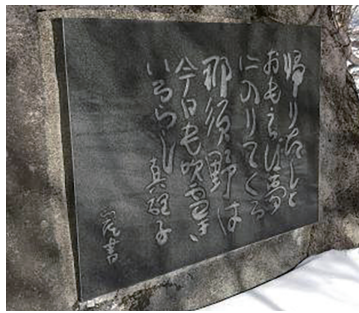 帰りたしと
おもえば夢
にのりてくる
那須野は
今日も吹雪き
いるらし